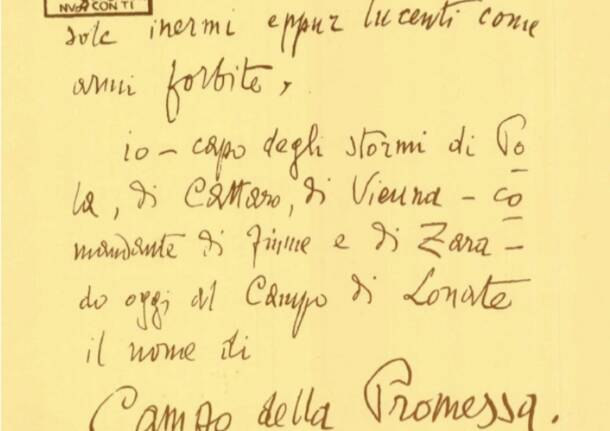 CONTI
sole inermi eppur lucenti come
armi forbite,
io – capo degli stormi di Po
la, di Cattaro, di Vienna – co
mandante di Fiume e di Zara –
do oggi al Campo di Lonate
il nome di
Campo della Promessa.